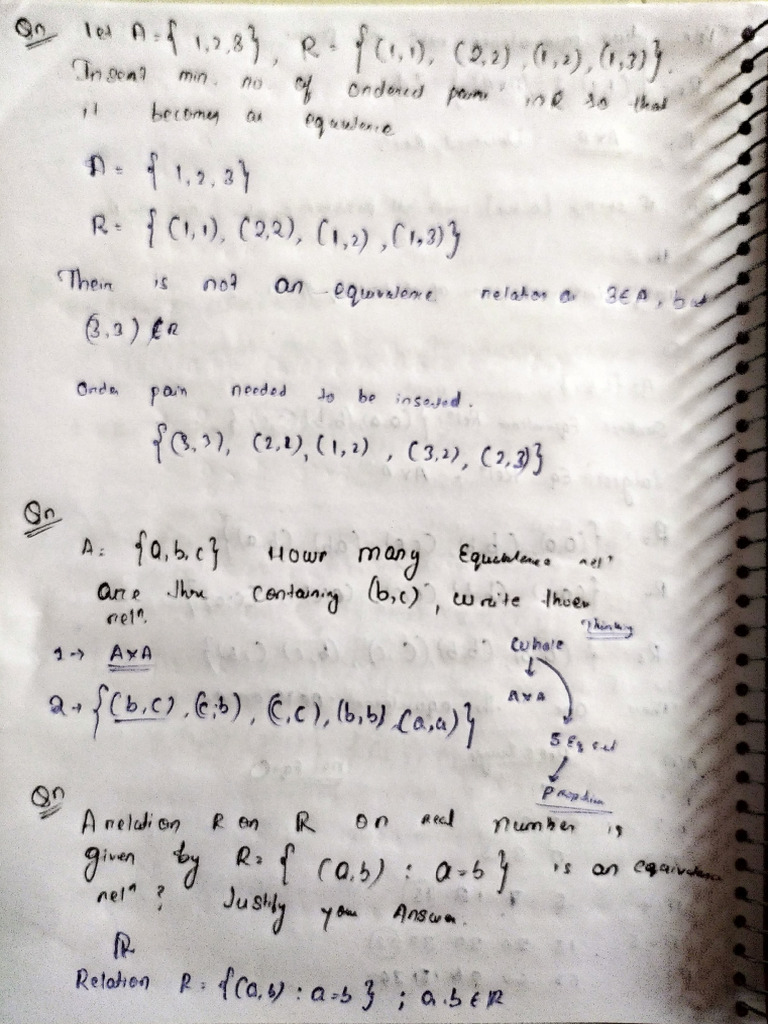 Qn let A = { 1,2,3}, R = { (1,1), (2,2), (1,2), (1,3)}.
Insert min. no of ordered pairs in R so that
it becomes as equvalence
A = { 1,2,3}
R = { (1,1), (2,2), (1,2), (1,3)}
Their is not an equivalence relation as 3∈A, but
(3,3) ∉R
Order pair needed to be inserted.
{(3,3), (2,1), (1,2), (3,2), (2,3)}
Qn
A = {a,b,c} How many Equivalence relⁿ
are there containing (b,c), write them
relⁿ.
Thinking
1→ A×A
Whole
A×A
2→ {(b,c), (c,b), (c,c), (b,b), (a,a)}
5 Eq rel
Qn
A relation R on R on real number is
given by R= { (a,b) : a=b } is an equivalence
relⁿ? Justify your Answer.
R
Relation R = {(a,b) : a=b } ; a.b ∈ R